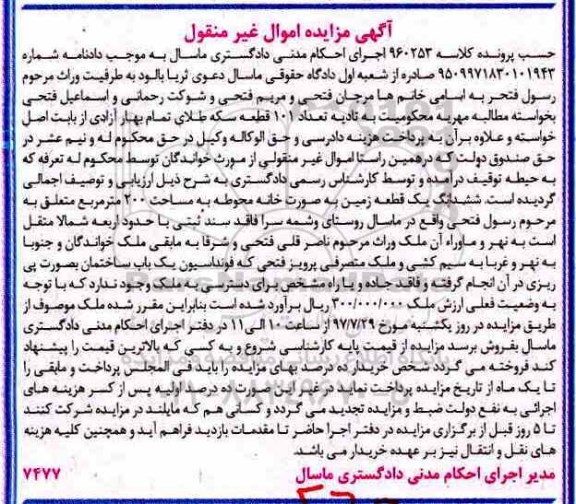 آگهی مزایده اموال غیر منقول
حسب پرونده کلاسه ۹۶۰۲۵۳ اجرای احکام مدنی دادگستری ماسال به موجب دادنامه شماره
۹۵۰۹۹۷۱۸۳۰۱۰۱۹۴۳ صادره از شعبه اول دادگاه حقوقی ماسال دعوی ثریا بالود به طرفیت وراث مرحوم
رسول فتحی به اسامی خانم ها مرجان فتحی و مریم فتحی و شوکت رحمانی و اسماعیل فتحی
بخواسته مطالبه مهریه محکومیت به تادیه تعداد ۱۰۱ قطعه سکه طلای تمام بهار آزادی از بابت اصل
خواسته و علاوه برآن به پرداخت هزینه دادرسی و حق الوکاله وکیل در حق محکوم له و نیم عشر در
حق صندوق دولت که درهمین راستا اموال غیر منقولی از مورث خواندگان توسط محکوم له تعرفه که
به حیطه توقیف درآمده و توسط کارشناس رسمی دادگستری به شرح ذیل ارزیابی و توصیف اجمالی
گردیده است. ششدانگ یک قطعه زمین به صورت خانه محوطه به مساحت ۲۰۰ مترمربع متعلق به
مرحوم رسول فتحی واقع در ماسال روستای وشمه سرا فاقد سند ثبتی با حدود اربعه شمالا متقل
است به نهر و ماوراء آن ملک وراث مرحوم ناصر قلی فتحی و شرقا به مابقی ملک خواندگان و جنوبا
به نهر و غربا به سیم کشی و ملک متصرفی پرویز فتحی که فونداسیون یک باب ساختمان بصورت پی
ریزی در آن انجام گرفته و فاقد جاده و یا راه شخص برای دسترسی به ملک وجود ندارد که با توجه
به وضعیت فعلی ارزش ملک ۳۰۰/۰۰۰/۰۰۰ ریال برآورد شده است بنابراین مقرر شده ملک موصوف از
طریق مزایده در روز یکشنبه مورخ ۹۷/۷/۲۹ از ساعت ۱۰ الی ۱۱ در دفتر اجرای احکام مدنی دادگستری
ماسال بفروش برسد مزایده از قیمت پایه کارشناسی شروع و به کسی که بالاترین قیمت را پیشنهاد
کند فروخته می گردد شخص خریدار ده درصد بهای مزایده را باید فی المجلس پرداخت و مابقی را
تا یک ماه از تاریخ مزایده پرداخت نماید در غیر این صورت ده درصد اولیه پس از کسر هزینه های
اجرائی به نفع دولت ضبط و مزایده تجدید می گردد و کسانی هم که مایلند در مزایده شرکت کنند
تا ۵ روز قبل از برگزاری مزایده در دفتر اجرا حاضر تا مقدمات بازدید فراهم آید و همچنین کلیه هزینه
های نقل و انتقال نیز بر عهده خریدار می باشد.
مدیر اجرای احکام مدنی دادگستری ماسال ۷۴۷۷